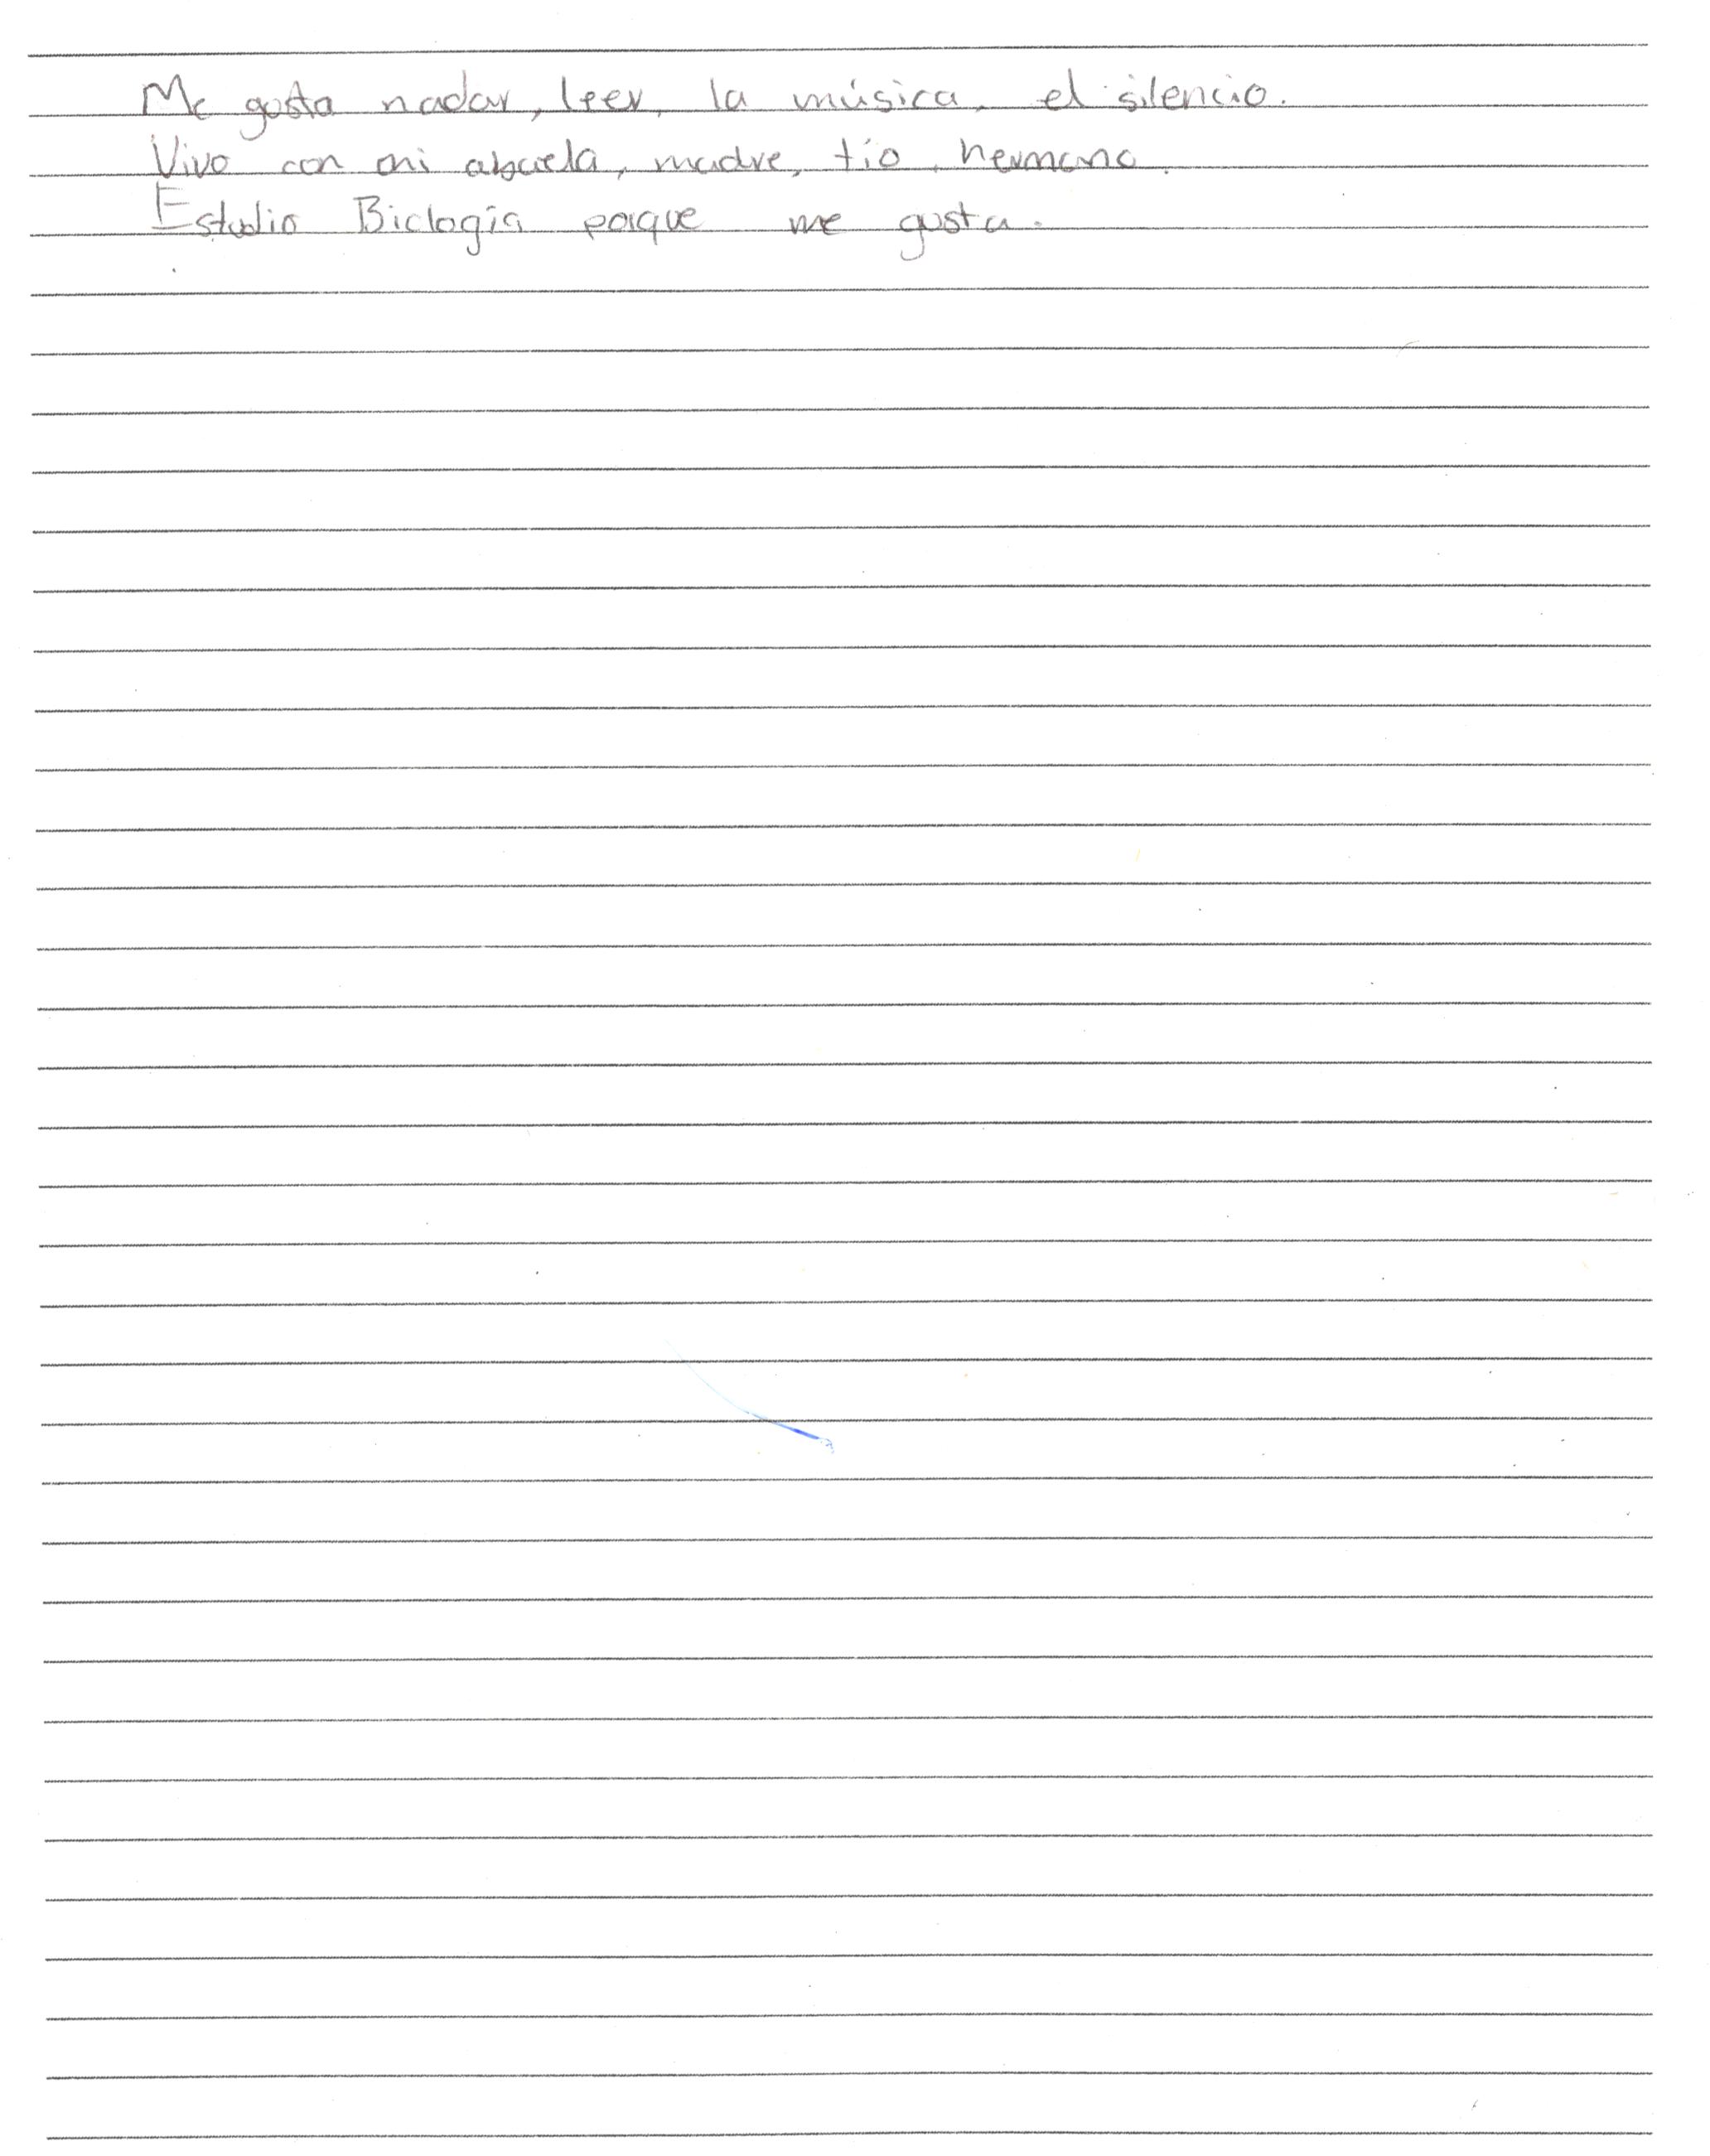 Me gusta nadar, leer, la música, el silencio.
Vivo con mi abuela, madre, tío, hermano.
Estudio Biología porque me gusta.